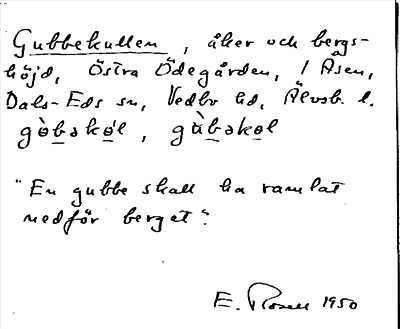 Gubbekullen, åker och bergs-
höjd, Östra Ödegården, / Åsen,
Dals-Eds sn, Vedbo hd, Älvsb. l.
"En gubbe skall ha ramlat
nedför berget".
E. Rosell 1950